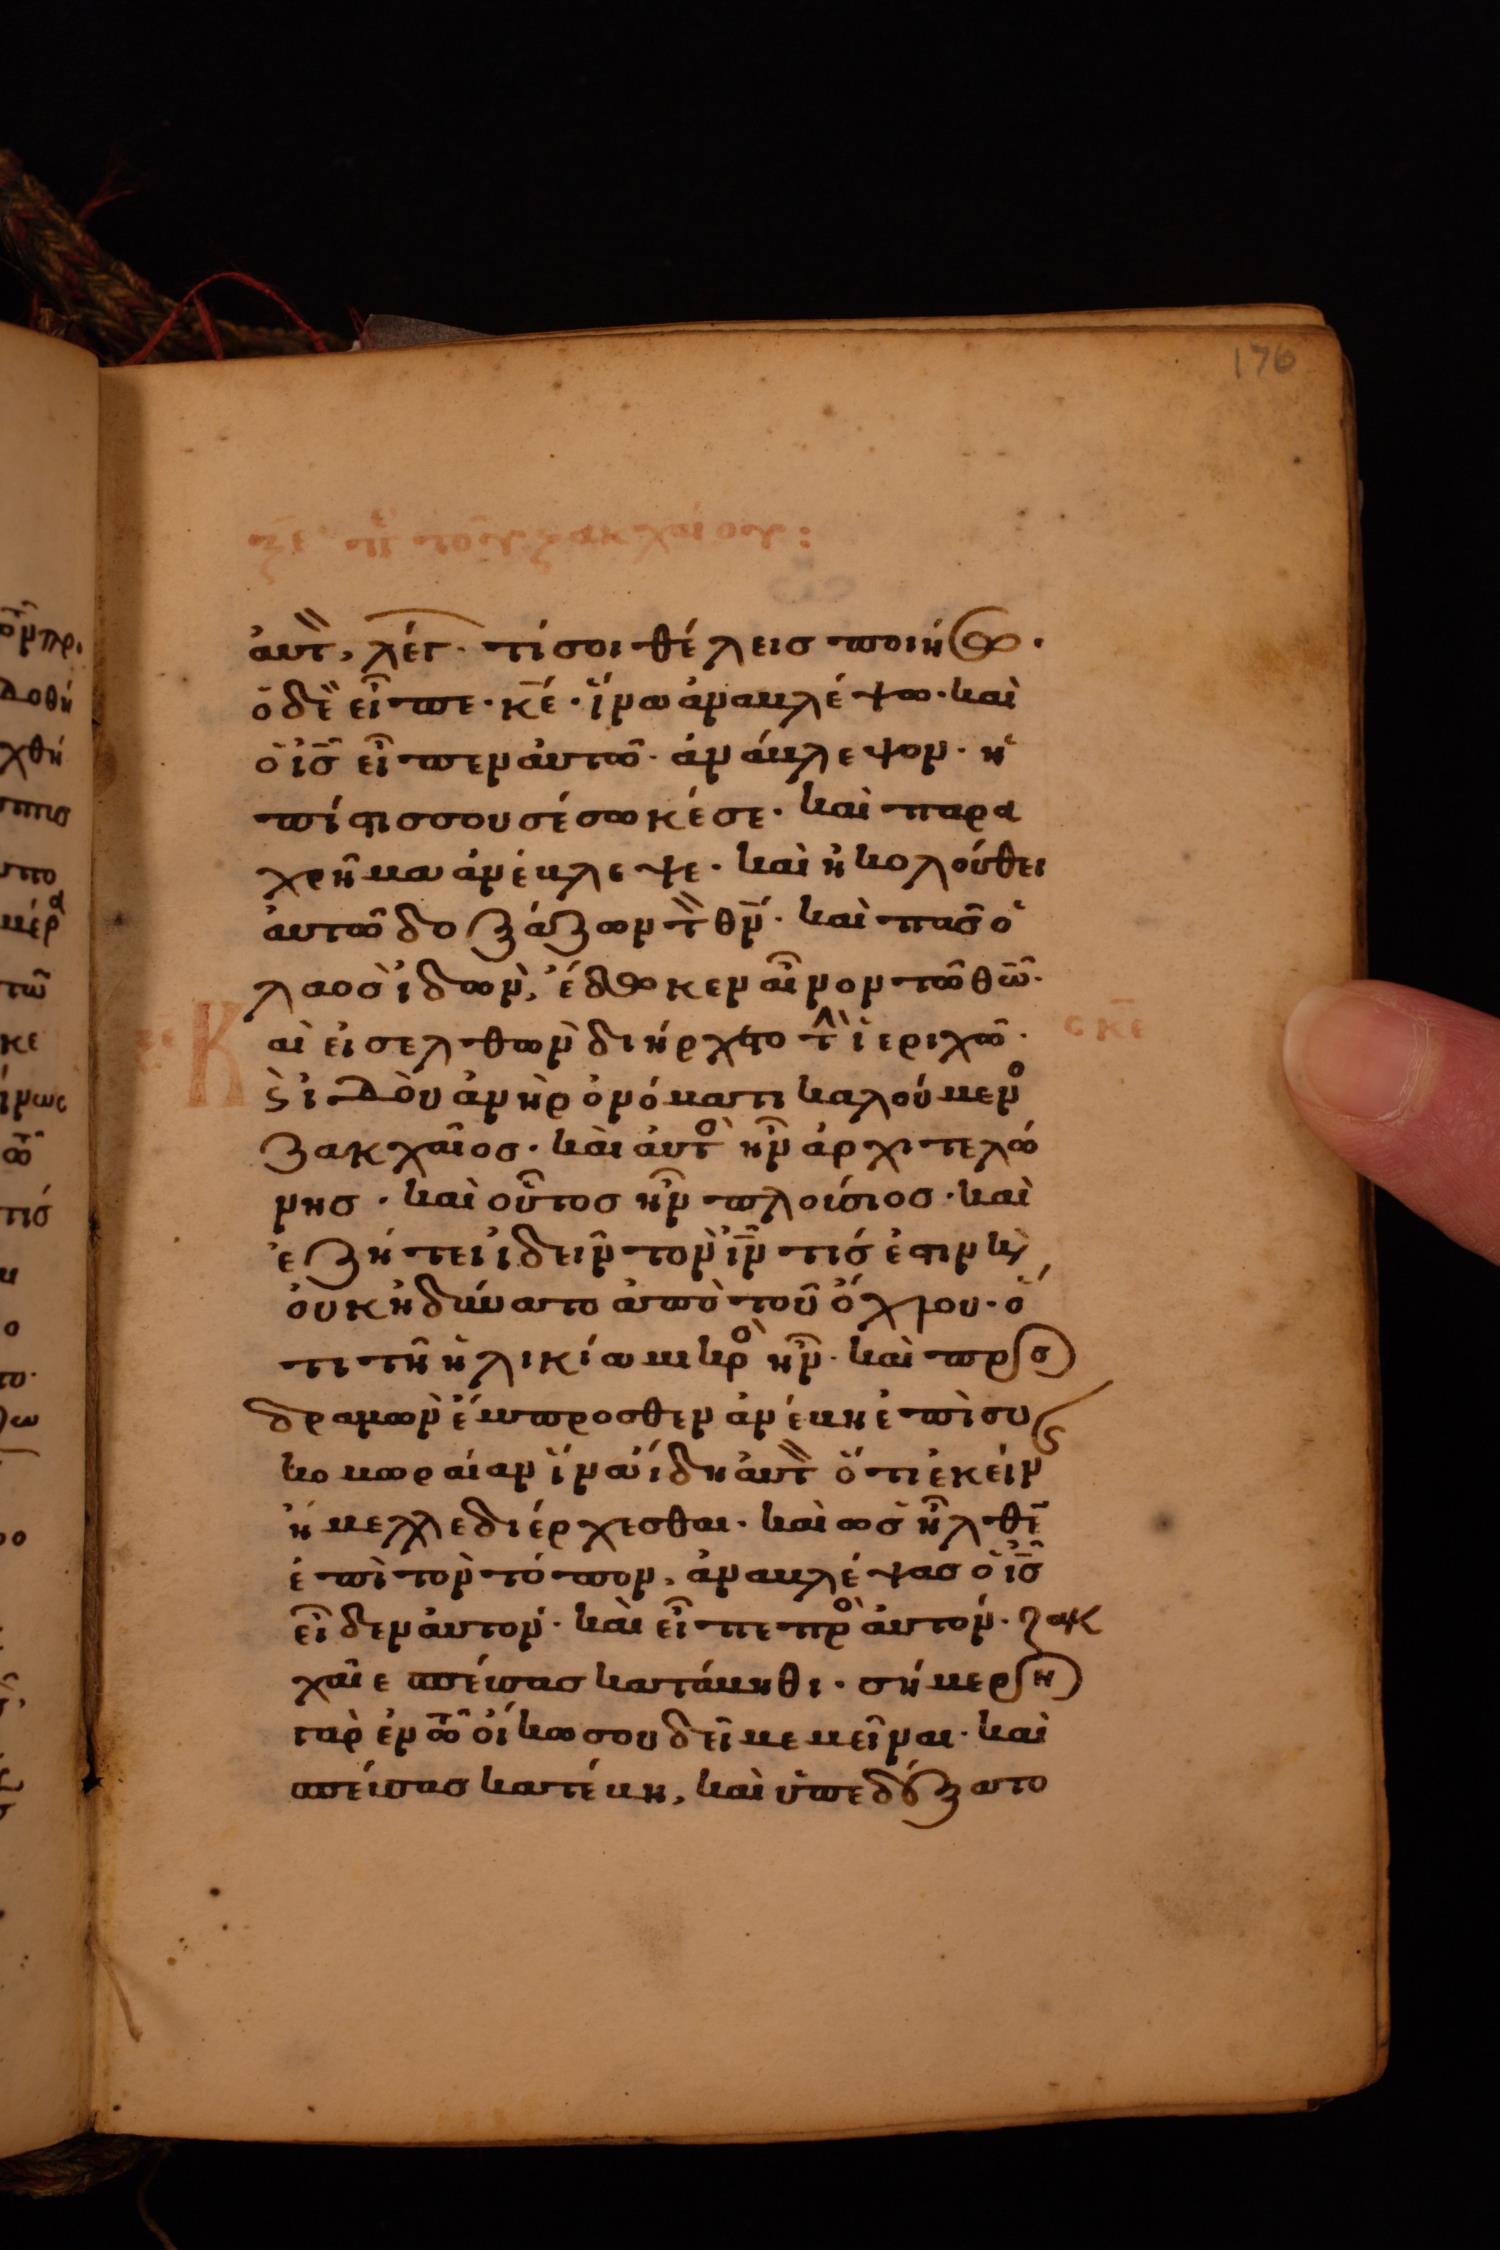 176
αὐτ, λέγ. τί σοι θέλεις ποιήσω·
ὁ δὲ εἶπε· κ̅ε̅· ἵνα ἀναβλέψω· καὶ
ὁ ι̅ς̅ εἶπεν αὐτῶ· ἀνάβλεψον· ἡ
πίστις σου σέσωκέ σε· καὶ παρα
χρῆμα ἀνέβλεψε· καὶ ἠκολούθει
αὐτῶ δοξάζων τ θ̅ν̅· καὶ πᾶς ὁ
λαὸς ἰδὼν, ἔδωκεν αἶνον τῶ θ̅ω̅·
Καὶ εἰσελθὼν διήρχετο τ ἱεριχῶ·
ϛ ἰδοὺ ἀνὴρ ὀνόματι καλούμενο
ζακχαῖος· καὶ αὐτὸ ἦν ἀρχιτελώ
νης· καὶ οὗτος ἦν πλούσιος· καὶ
ἐζήτει ἰδεῖν τὸν ι̅ν̅ τίς ἐστιν κ
οὐκ ἠδύνατο ἀπὸ τοῦ ὄχλου· ὅ
τι τῆ ἡλικία μικρὸ ἦν· καὶ προσ
δραμὼν ἔμπροσθεν ἀνέβη ἐπὶ συ
κομωραίαν ἵνα ἴδη αὐτ ὅτι ἐκείν
ἤμελλε διέρχεσθαι· καὶ ὡς ἦλθε
ἐπὶ τὸν τόπον, ἀναβλέψας ὁ ι̅ς̅
εἶδεν αὐτόν· καὶ εἶπε πρὸ αὐτόν· ζακ
χαῖε σπεύσας κατάβηθι· σήμερον
γὰρ ἐν τῶ οἴκω σου δεῖ με μεῖναι· καὶ
σπεύσας κατέβη, καὶ ὑπεδέξατο